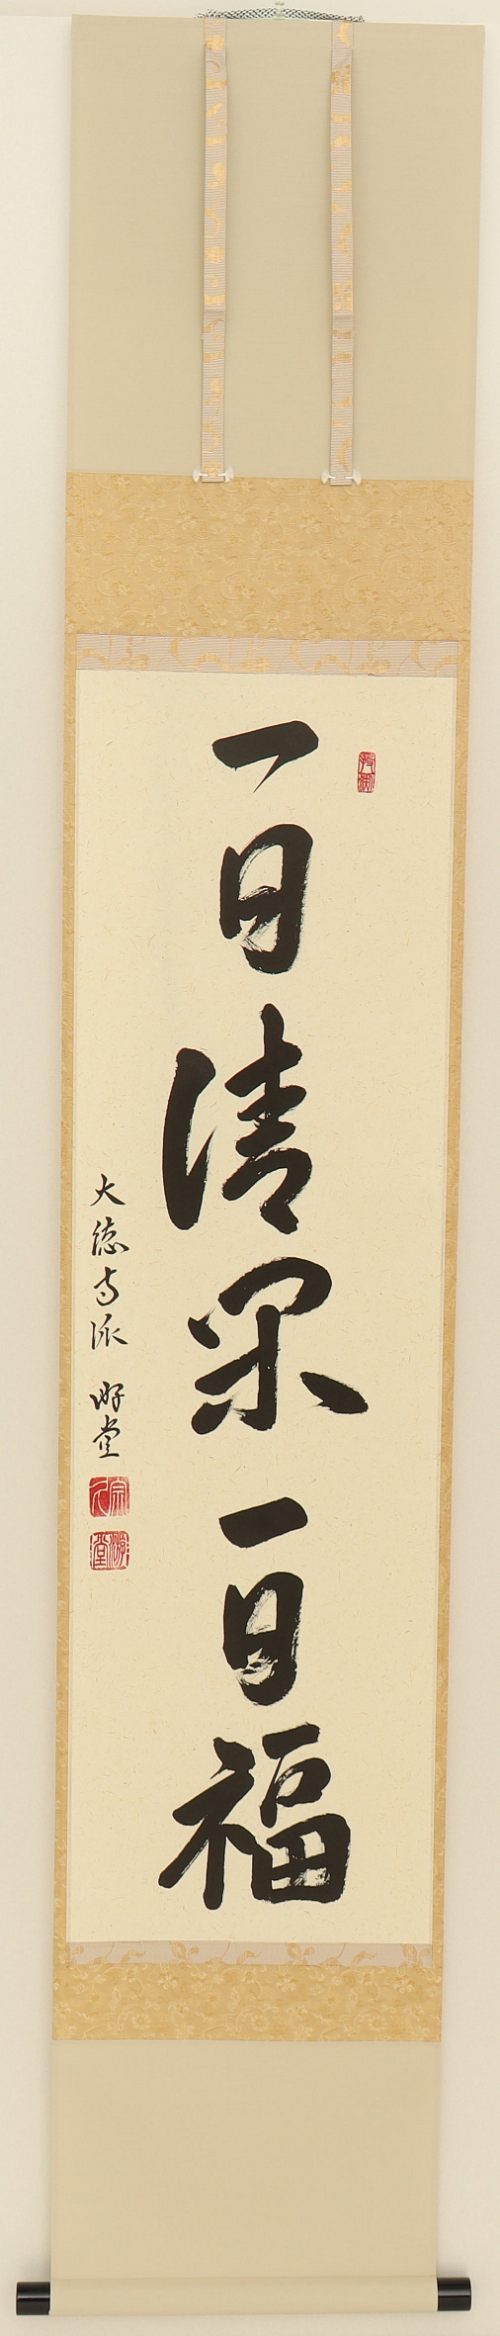 一日清閑一日福
大徳寺派 明堂